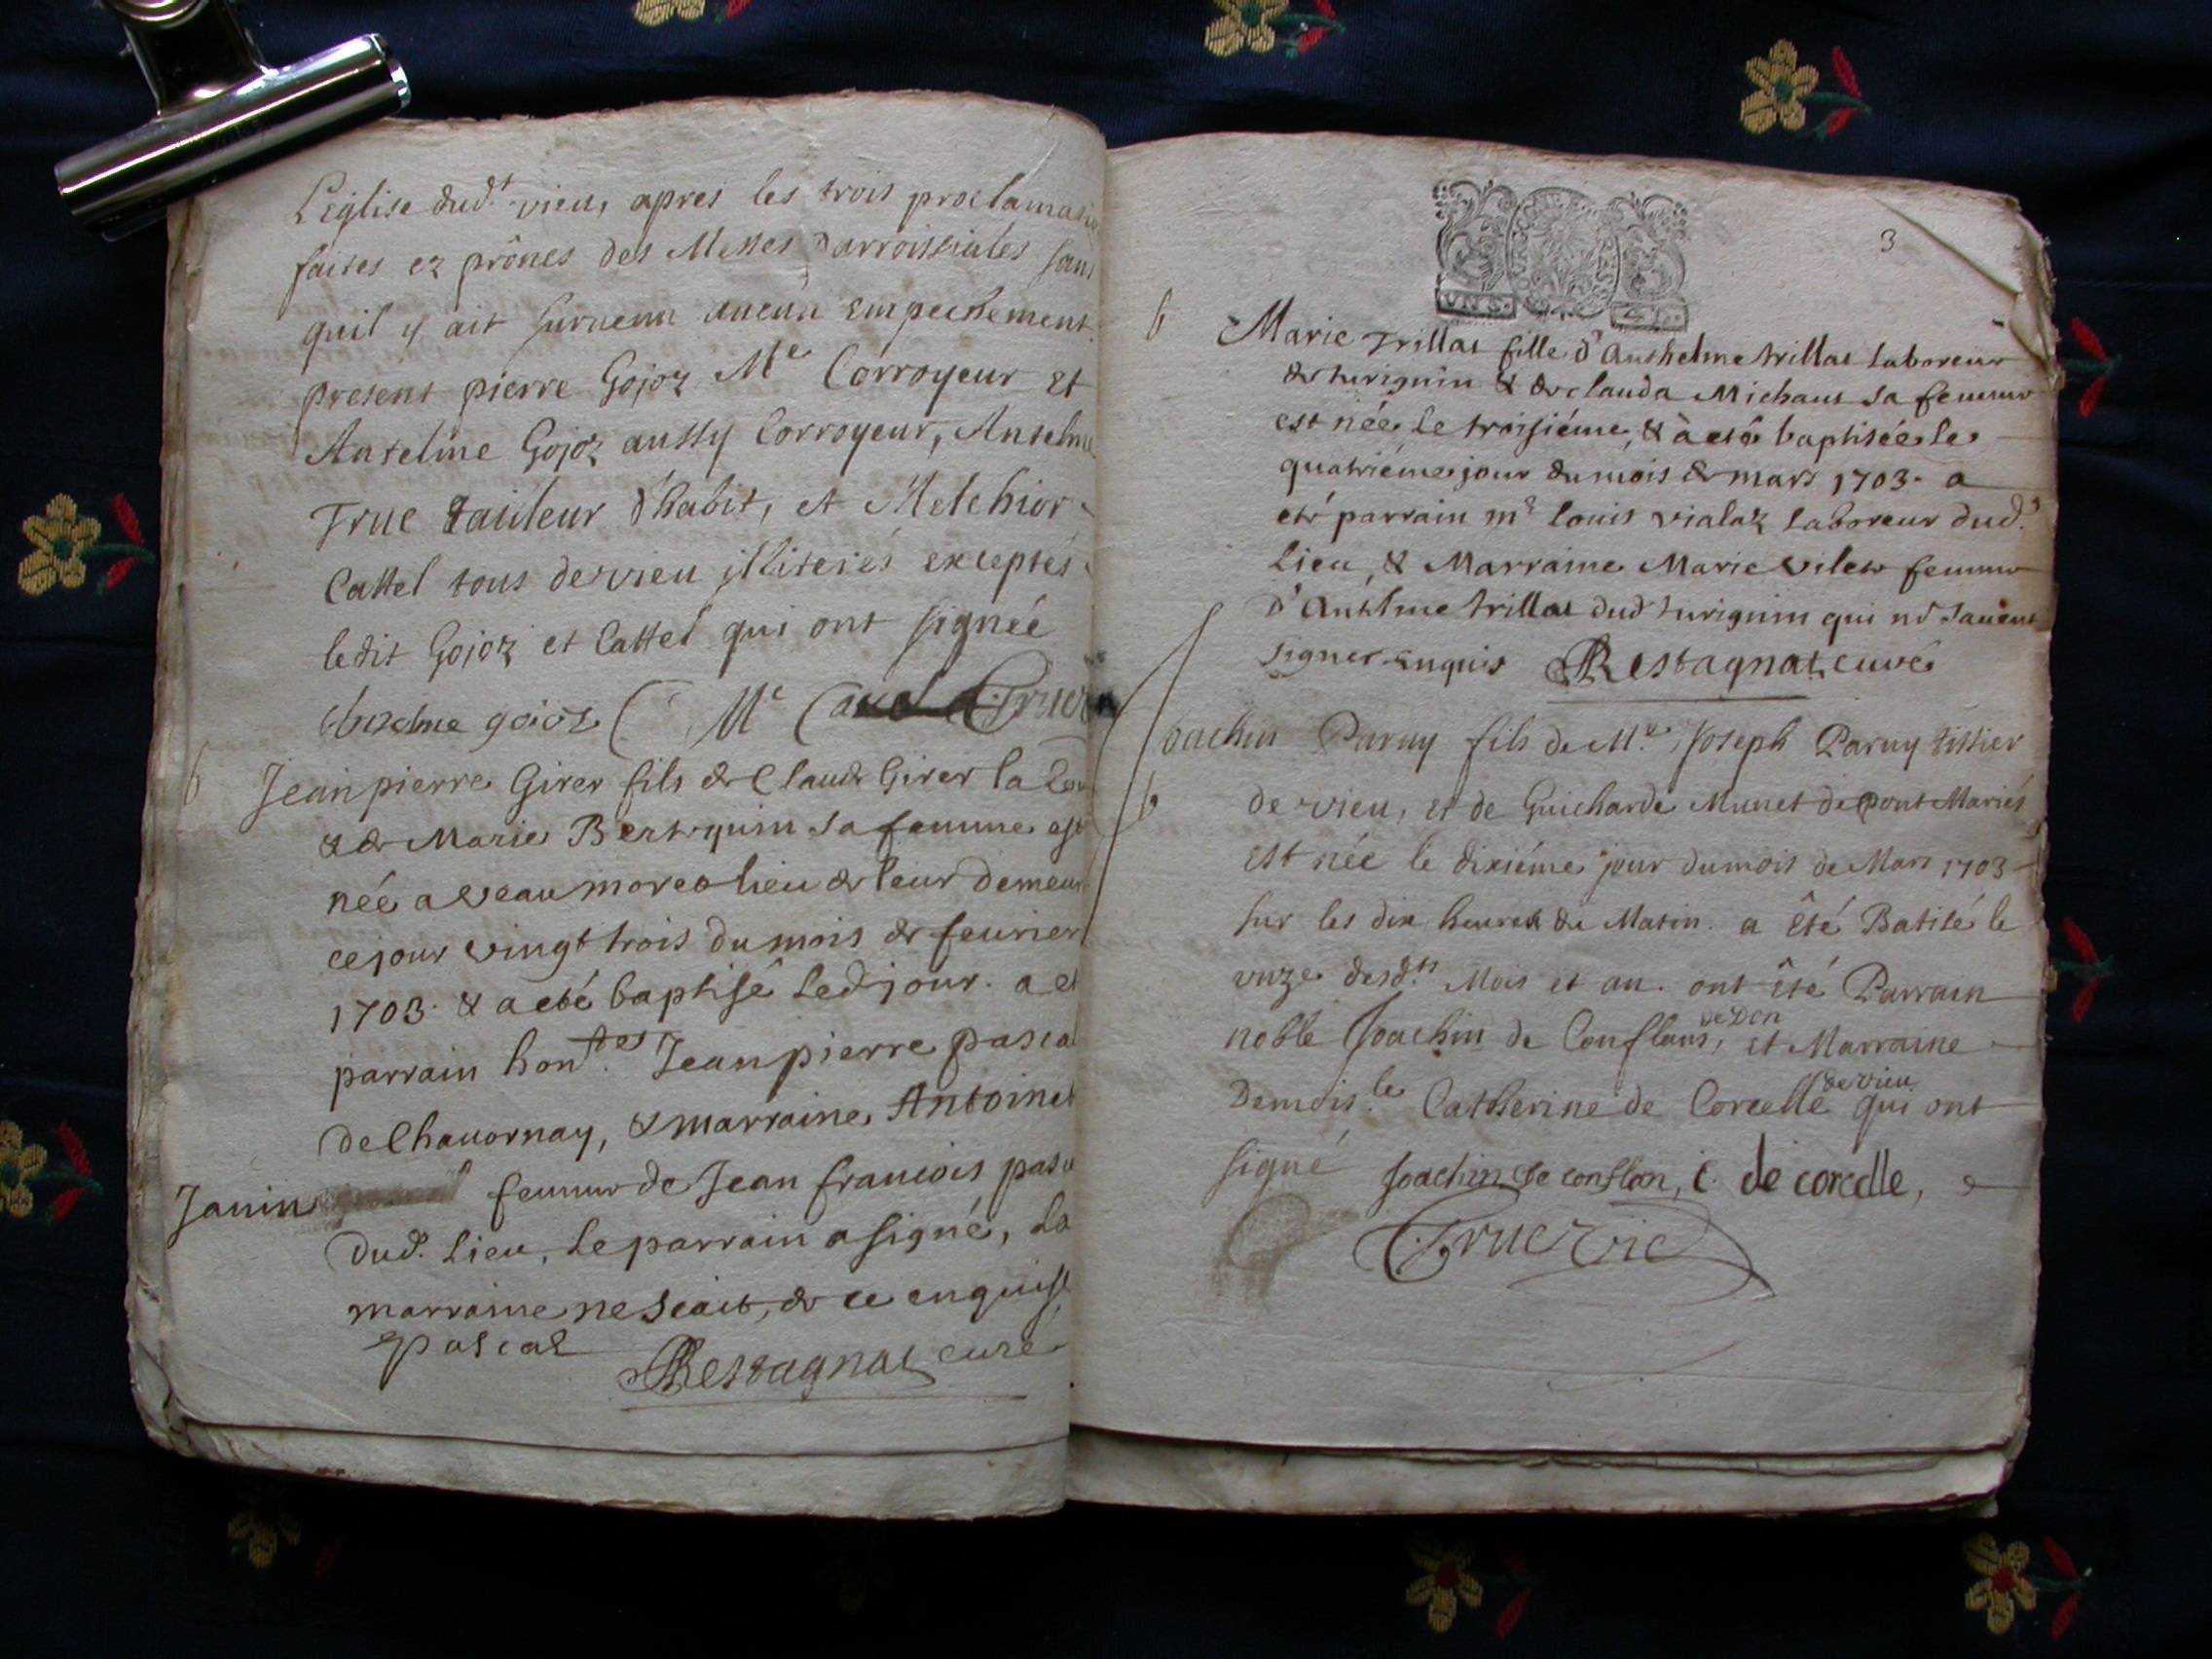 L'église dud.t vieu, apres les trois proclamatio
faites ez prônes des Messes Parroissiales sans
quil y ait survenu aucun empechement.
present pierre Gojoz M.e Corroyeur et
Anselme Gojoz aussy Corroyeur, Anselme
Truc tailleur d'habit, et Melchior
Cattel tous de vieu illiterés exceptés
ledit Gojoz et Cattel qui ont signée
gojoz M.e Cattel Truc
b Jeanpierre Girer fils de Claude Girer la
& de Marie Bertquin sa femme est
née a lieu de leur demeur
ce jour vingt trois du mois de feurier
1703. & a eté baptisê led jour. a et
parrain hon.t Jeanpierre pascal
de Chauornay, & marraine Antoinet
Janin femme de Jean francois pasca
dud. lieu, le parrain a signé, la
marraine ne sçait, de ce enquise
Pascal Restagnat curé
3
VN S. 4 D.
b Marie Trillat fille d'Anthelme trillat laboreur
de turignin & de clauda Michaut sa femme
est née le troisiéme, & à eté baptisée le
quatriéme jour du mois de mars 1703. a
eté parrain m.e louis vialaz laboreur dud.t
lieu, & Marraine Marie vilet femme
D'Anthlme trillat dud turignin qui ne sauent
signer enquis Restagnat curé
Joachin Paruy fils de M.e Joseph Paruy tissier
b de vieu, et de Guicharde Munet de pont Mariés
est née le dixiéme jour du mois de Mars 1703
sur les dix heures du Matin. a êté Batisé le
unze desd.ts Mois et an. ont êté Parrain
noble Joachin de Conflans, de Don et Marraine
Demois.le Catherine de Corcelle de vieu qui ont
signé Joachin de conflan, C. de corcelle,
Truc vic